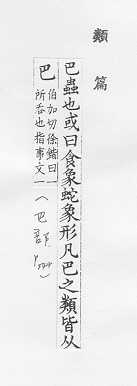 類篇
巴蟲也或曰食象蛇象形凡巴之類皆从
巴
伯加切徐鍇曰
所吞也指事文一
(巴部